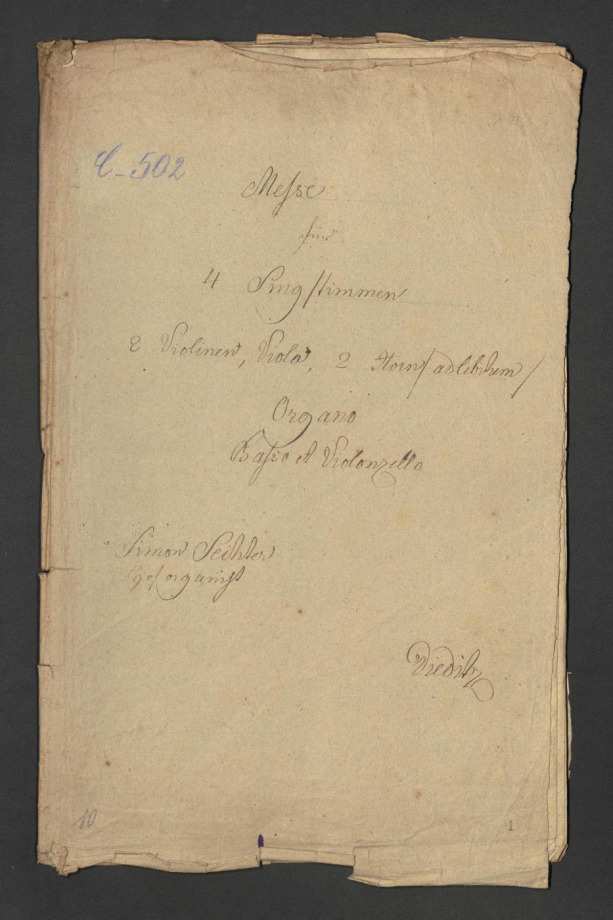 C-502
Messe
für
4 Singstimmen
2 Violinen, Viola, 2 Horn/ad libitum/
Organo
Basso et Violonzello
Simon Sechter
Hoforganist
10
1